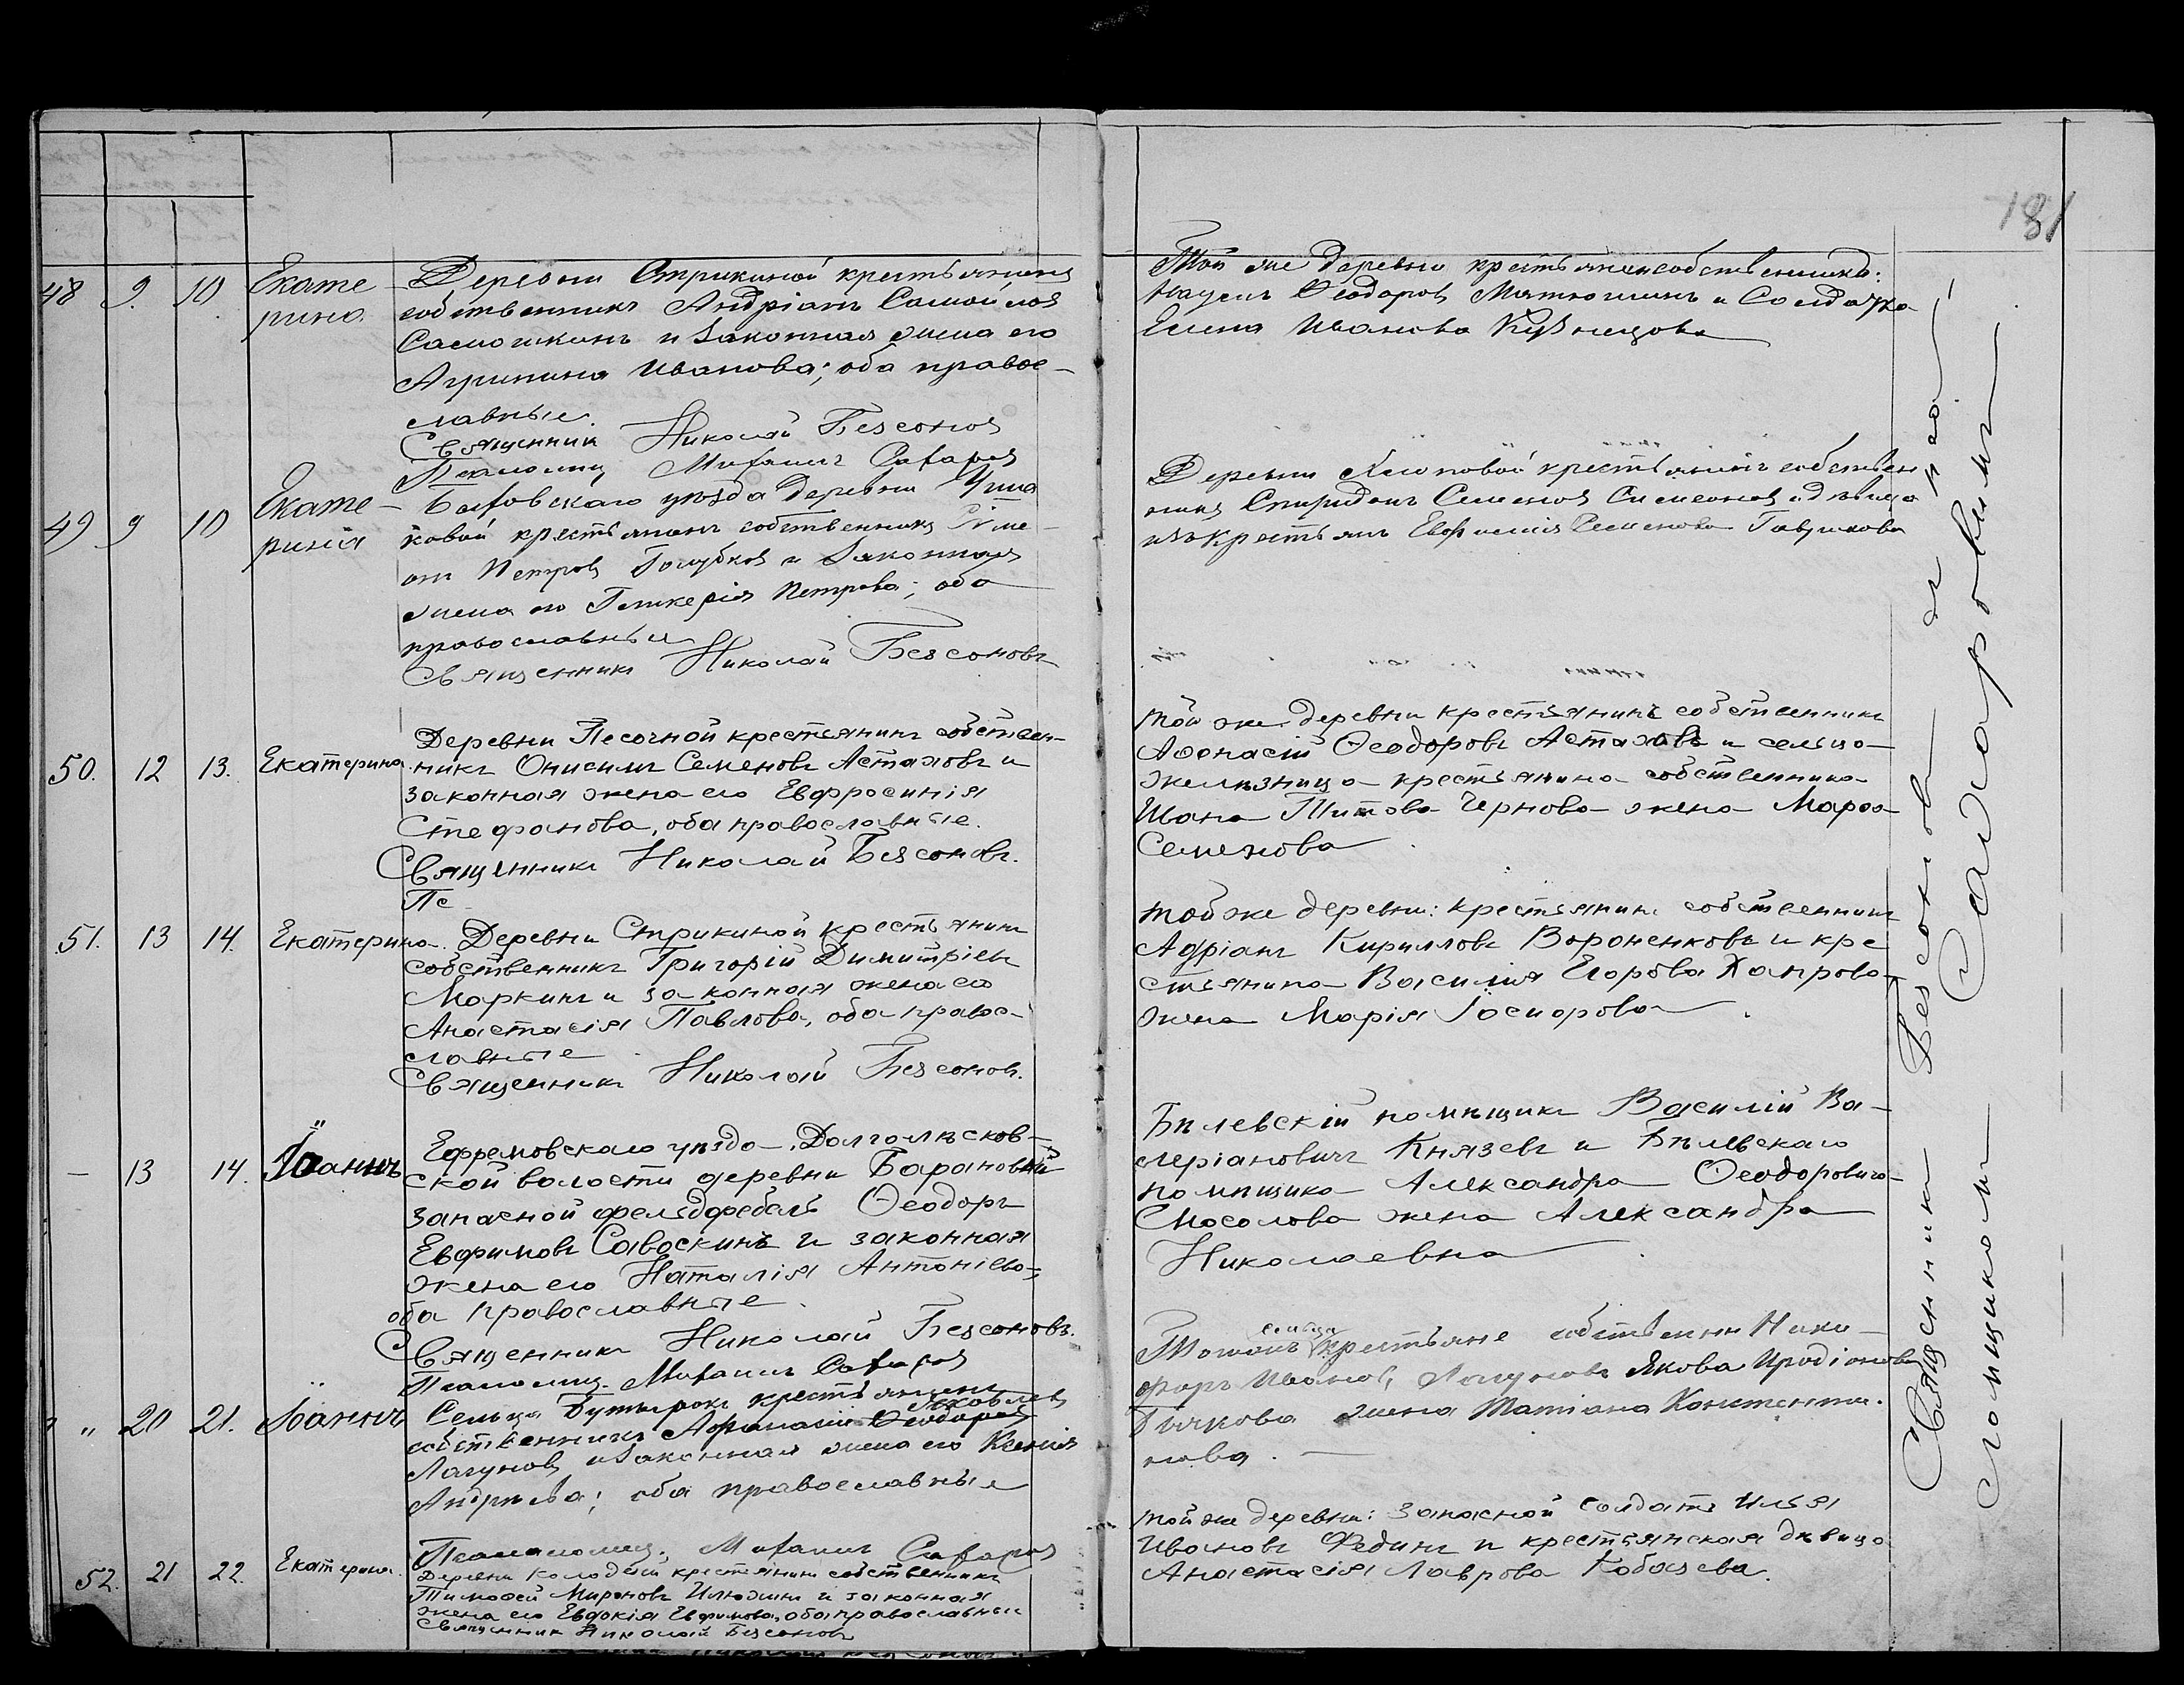 181
48 9. 10 Екате
рина.
Деревни Стрикиной крестьянинъ
собственникъ Андріанъ Самойловъ
Самошкинъ и законная жена его
Агрипина Иванова; оба правос-
лавные.
Священник Николай Безсоновъ
Псаломщ Михаилъ Сахаровъ
Той же деревни крестьянинсобственникъ:
Наумъ Ѳеодоровъ Матюшинъ и Солдатка
Елена Иванова Кузнецова
49 9 10 Екате-
рина
уѣзда деревни
ковой крестьянинъ собственникъ Симе-
онъ Петровъ Голубков и Законная
жена его Гликерія Петрова; оба
православные
Священникъ Николай Безсоновъ
Деревни крестьянинъ собствен
никъ Спиридонъ Семеновъ Симеоновъ и дѣвица
изъ крестьянъ Евфимія Семенова
50. 12 13. Екатерина.
Деревни Песочной крестьянинъ собствен-
никъ Онисимъ Семеновъ Астаховъ и
законная жена его Евфросинія
Стефанова, оба православные.
Священникъ Николай Безсоновъ.
Пс
той же деревни крестьянинъ собственникъ
Аѳонасій Ѳеодоровъ Астаховъ и сельца
Желѣзница крестьянина собственника
Ивана Титова Чернова жена Марѳа
Семенова
51. 13 14. Екатерина.
Деревни Стрикиной крестьянинъ
собственникъ Григорій Димитріевъ
Маркинъ и законная жена его
Анастасія Павлова, оба правос-
лавные
Священникъ Николай Безсоновъ.
той же деревни: крестьянинъ собственникъ
Адріанъ Кирилловъ Вороненковъ и кре
стьянина Василія Егорова Хапрова
жена Марія
— 13 14. Іоаннъ
Ефремовскаго уѣзда Долголѣсков-
ской волости деревни Барановой
запасной фельдфебель Ѳеодоръ
Евфимовъ Савоскинъ и законная
жена его Наталія Антоніева,
оба православные.
Священникъ Николай Безсоновъ.
Псаломщ. Михаилъ Сахаров
Бѣлевскій помѣщикъ Василій Ва-
леріановичъ Князевъ и Бѣлевскаго
помѣщика Александра Ѳеодоровича
Мосолова жена Александра
Николаевна
" 20 21. Іоаннъ
Сельца Бутырокъ крестьянинъ
Яковлев
собственникъ Афанасій Ѳеодоровъ
Лагуновъ и Законная жена его Ксенія
Андреева; оба православные
Псаломщ. Михаилъ Сахаров
сельца
Тогожъ крестьяне собственн Ники-
форъ Ивановъ Лагуновъ Якова Иродіонова
Бычкова жена Татіана Констенти-
нова.
52. 21 22. Екатерина.
Деревни Колодези крестьянинъ собственникъ
Тимоѳей Мироновъ Илюхинъ и законная
жена его Евдокія Евфимова, оба православные
Священник Николай Безсоновъ
той же деревни: запасной солдатъ Илья
Ивановъ Фединъ и крестьянская дѣвица
Анастасія Лаврова Кобазева.
Священникъ Безсоновъ съ пса-
ломщикомъ Сахаровымъ